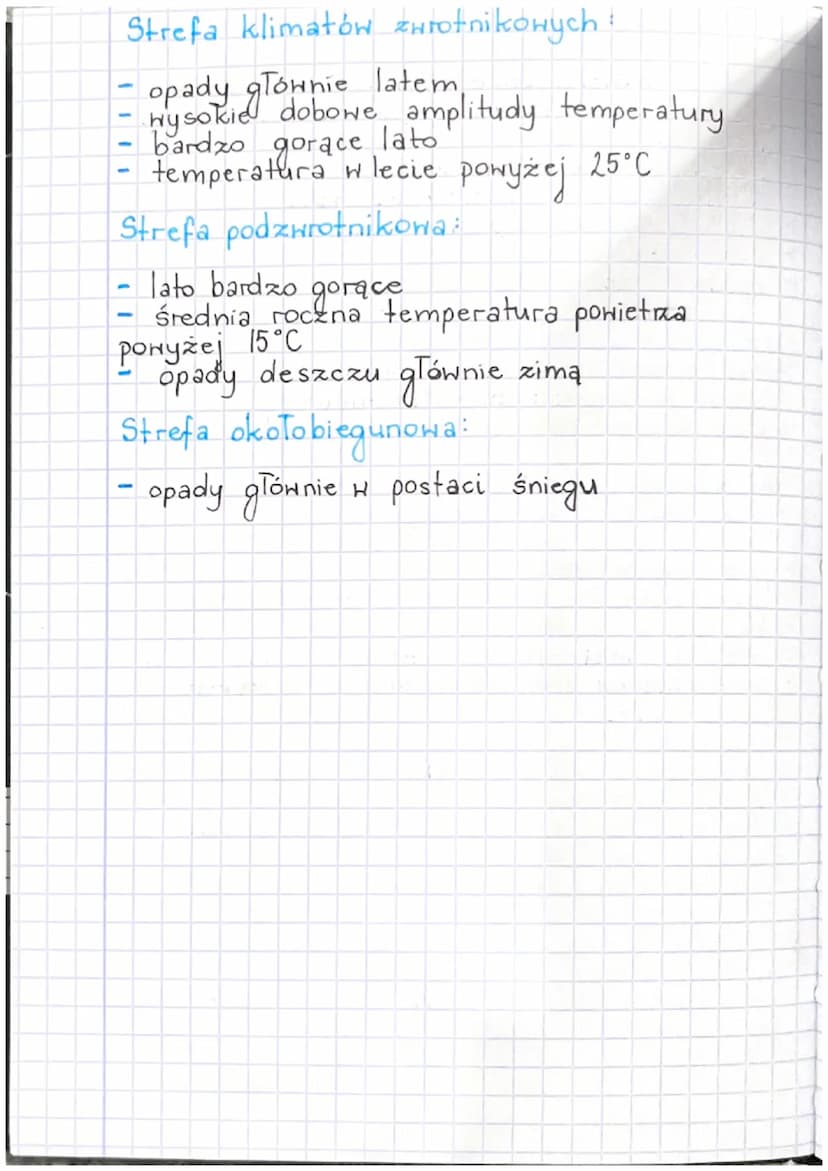 Strefa klimatów zwrotnikowych:
- opady głównie latem
- wysokie dobowe amplitudy temperatury
- bardzo gorące lato
- temperatura w lecie powyżej 25°C
Strefa podzwrotnikowa:
- lato bardzo gorące
- średnia roczna temperatura powietrza
powyżej 15°C
- opady deszczu głównie zimą
Strefa okołobiegunowa:
- opady głównie w postaci śniegu